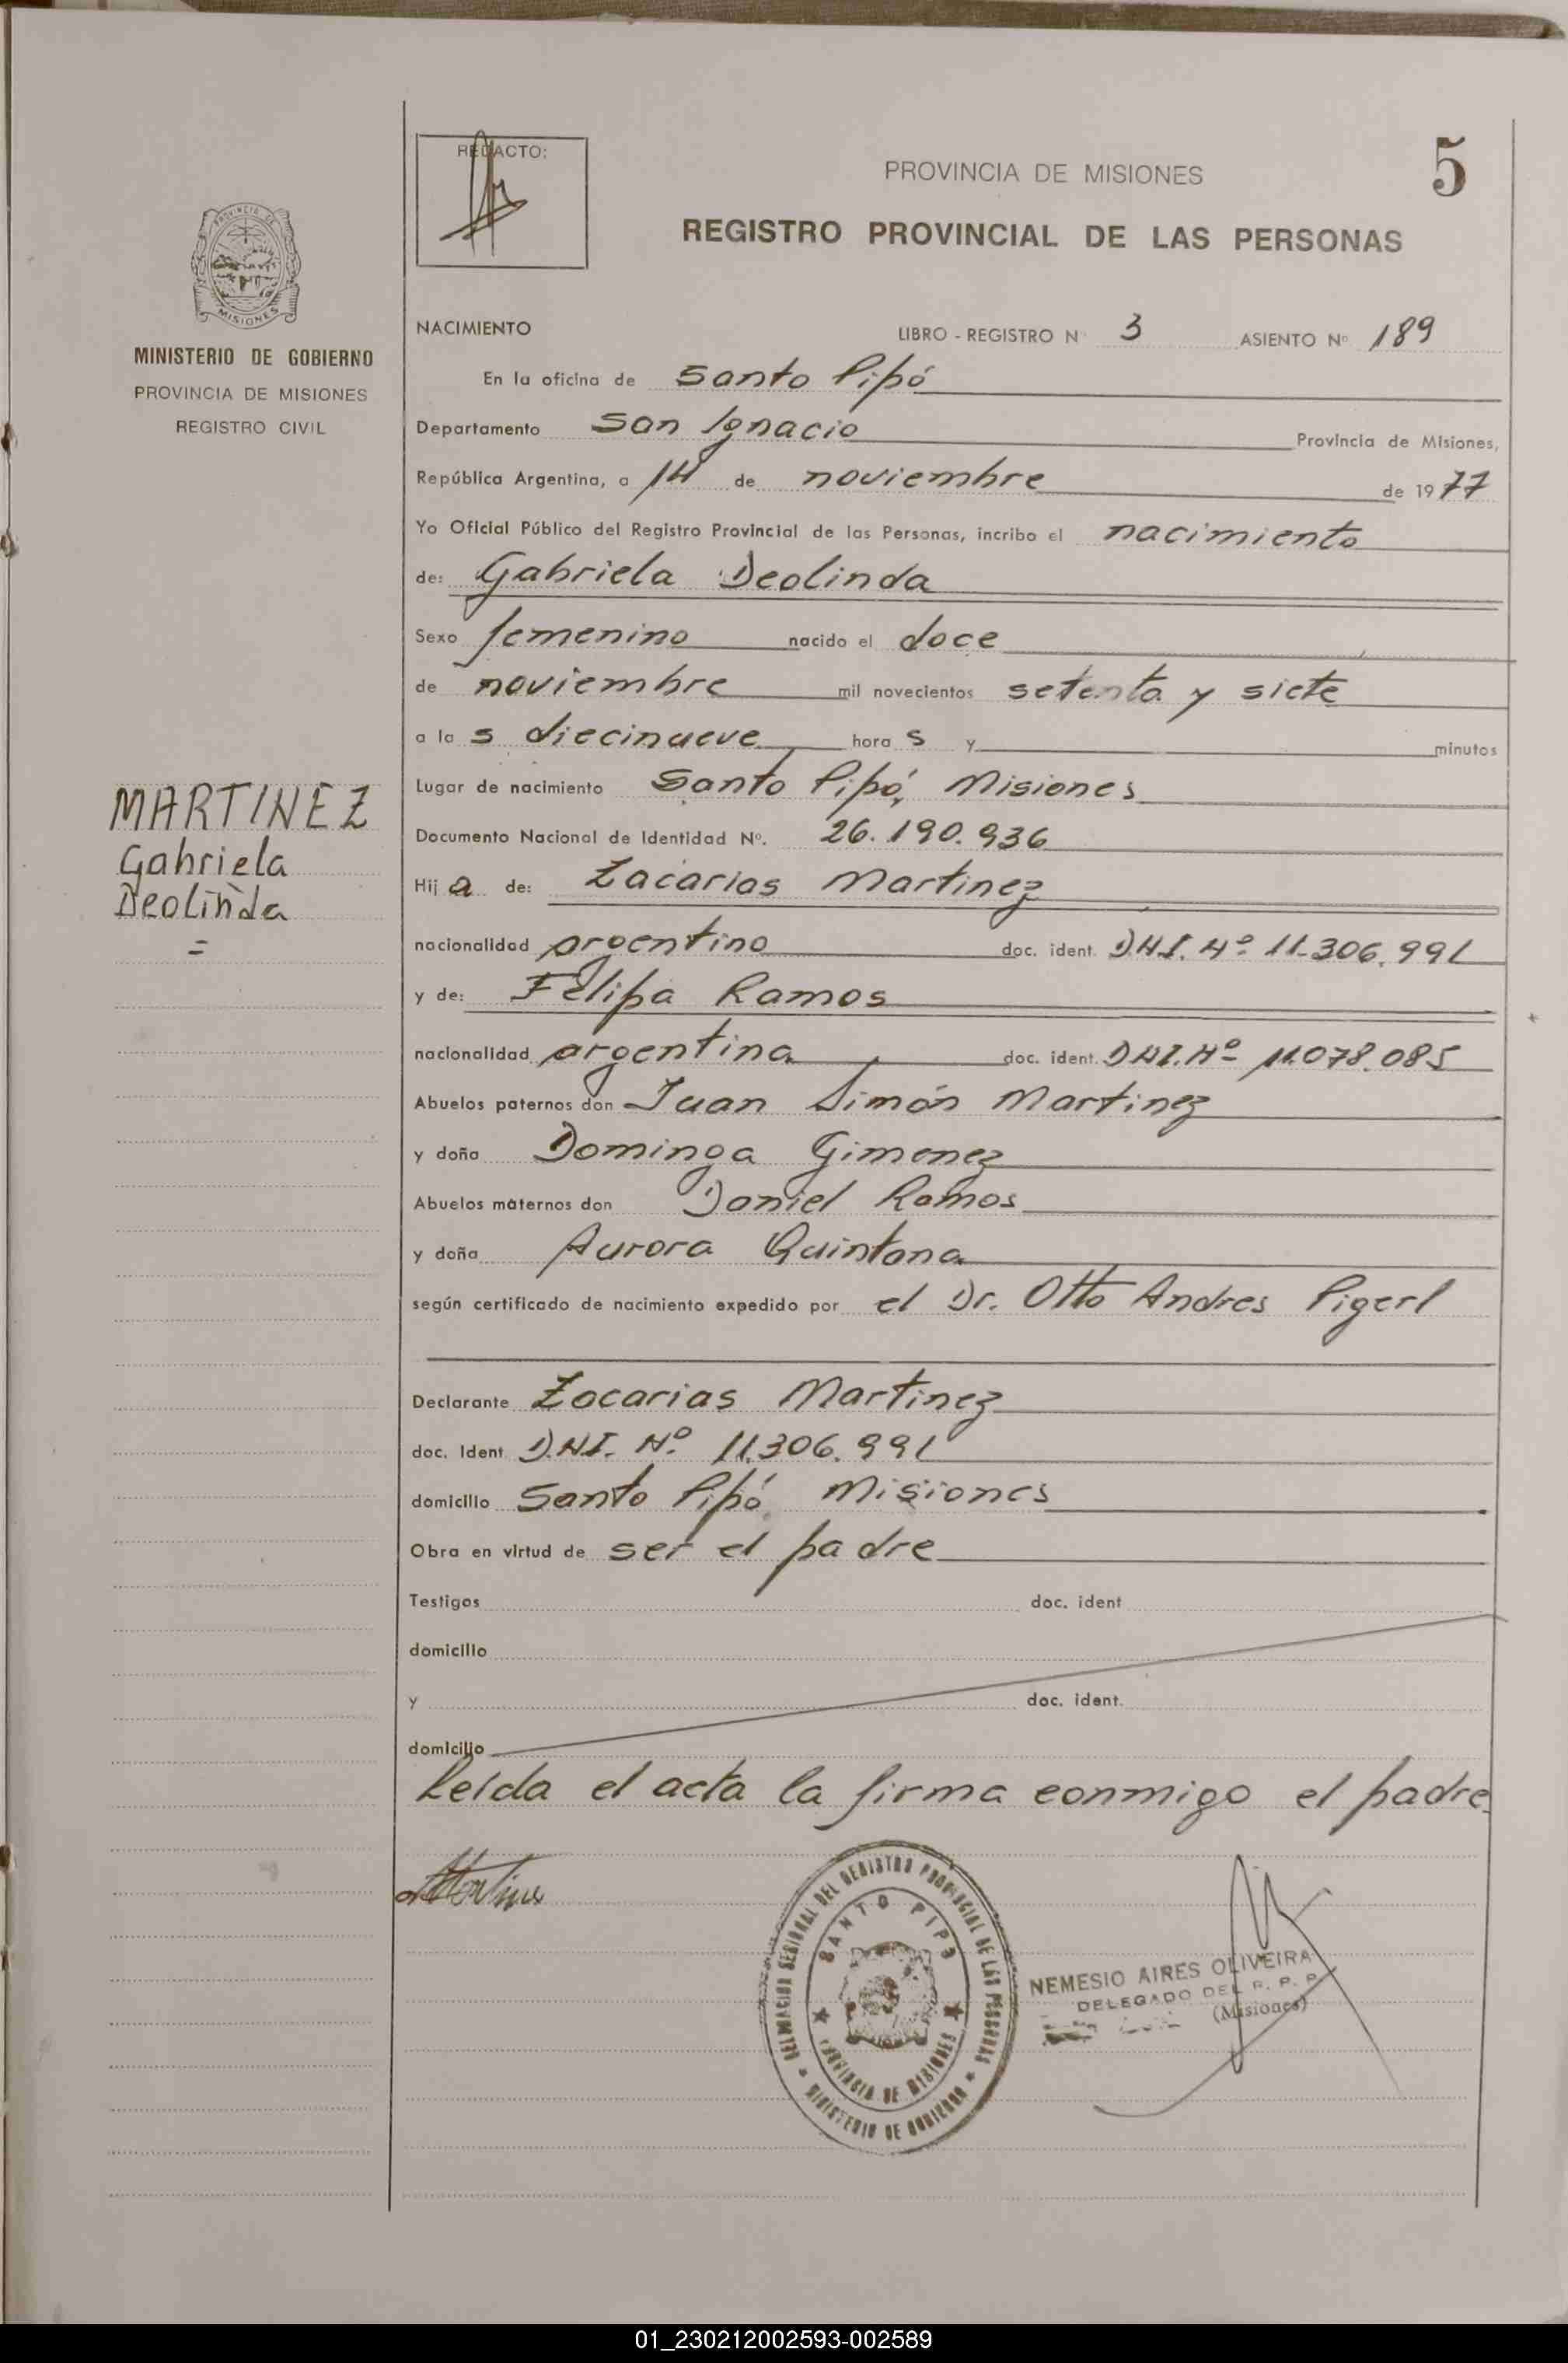 REDACTO:
PROVINCIA DE MISIONES
5
REGISTRO PROVINCIAL DE LAS PERSONAS
PROVINCIA DE
MISIONES
MINISTERIO DE GOBIERNO
PROVINCIA DE MISIONES
REGISTRO CIVIL
NACIMIENTO LIBRO - REGISTRO Nº 3 ASIENTO Nº 189
En la oficina de Santo Pipó
Departamento San Ignacio Provincia de Misiones,
República Argentina, a 14 de noviembre de 1977
Yo Oficial Público del Registro Provincial de las Personas, incribo el nacimiento
de: Gabriela Deolinda
Sexo femenino nacido el doce
de noviembre mil novecientos setenta y siete
a las diecinueve horas y minutos
Lugar de nacimiento Santo Pipó, Misiones
Documento Nacional de Identidad Nº. 26.190.936
Hija de: Zacarias Martinez
nacionalidad argentino doc. ident. D.N.I. Nº 11.306.991
y de: Felipa Ramos
nacionalidad argentina doc. ident. DNI. Nº 11.078.085
Abuelos paternos don Juan Simón Martinez
y doña Dominga Gimenez
Abuelos maternos don Daniel Ramos
y doña Aurora Quintana
según certificado de nacimiento expedido por el Dr. Otto Andres Pigerl
Declarante Zacarias Martinez
doc. Ident. D.N.I. Nº 11.306.991
domicilio Santo Pipó, Misiones
Obra en virtud de ser el padre
Testigos doc. ident
domicilio
y doc. ident.
domicilio
Leída el acta la firma conmigo el padre.
MARTINEZ
Gabriela
Deolinda
=
DELEGACION REGIONAL DEL REGISTRO PROVINCIAL DE LAS PERSONAS
SANTO PIPO
PROVINCIA DE MISIONES
MINISTERIO DE GOBIERNO
NEMESIO AIRES OLIVEIRA
DELEGADO DEL R. P. P.
(Misiones)
01_230212002593-002589